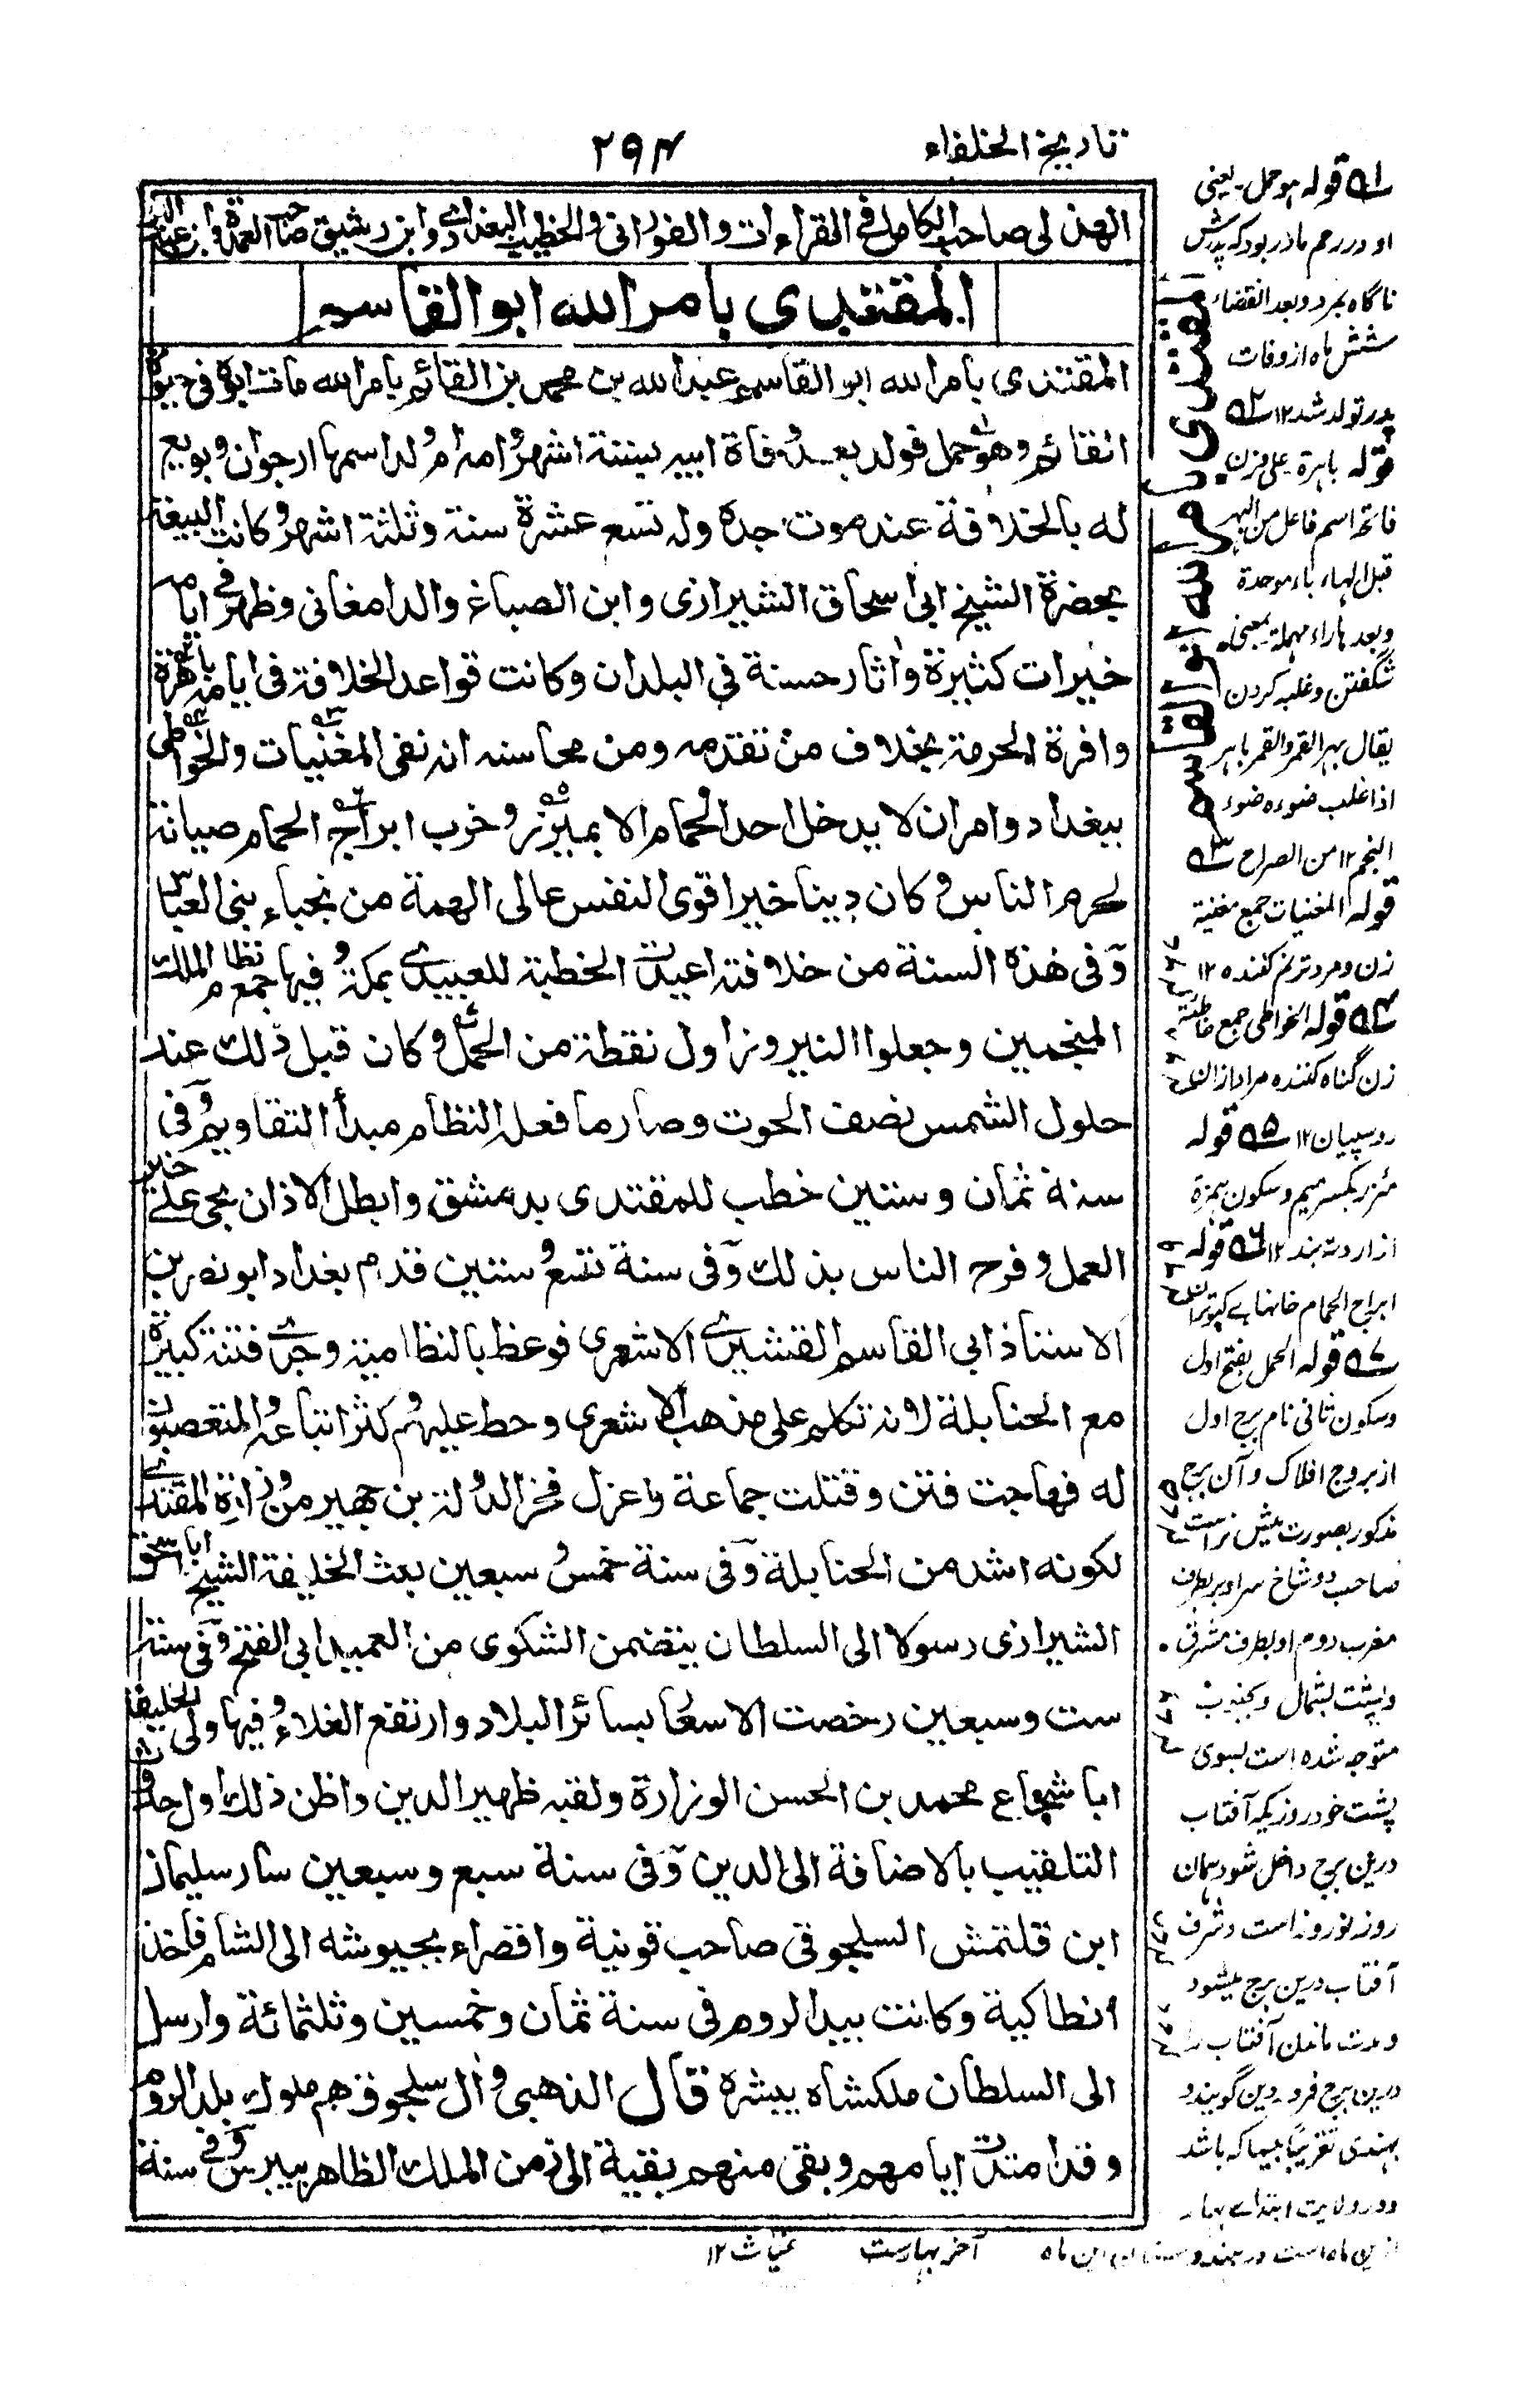 تاريخ الخلفاء
۲۹۴
الهذلى صاحب الكامل فى القراءات والفورانى والخطيب البغدادى وابن رشيق صاحب العمدة وابن عبد البر
المقتدى بامر الله ابو القاسم
المقتدى بامر الله ابو القاسم عبد الله بن محمد بن القائم بامر الله مات ابوه فى حيوة
القائم وهو حمل فولد بعد وفاة ابيه بستة اشهر وامه ام ولد اسمها ارجوان وبويع
له بالخلافة عند موت جده وله تسع عشرة سنة وثلثة اشهر وكانت البيعة
بحضرة الشيخ ابى اسحاق الشيرازى وابن الصباغ والدامغانى وظهر فى ايامه
خيرات كثيرة واثار حسنة فى البلدان وكانت قواعد الخلافة فى ايامه باهرة
وافرة الحرمة بخلاف من تقدمه ومن محاسنه انه نفى المغنيات والخواطى
ببغداد وامران لا يدخل احد الحمام الا بميزر وخرب ابراج الحمام صيانة
لحرم الناس وكان دينا خيرا قوى النفس عالى الهمة من نجباء بنى العباس
وفى هذه السنة من خلافته اعيدت الخطبة للعبيدى بمكة وفيها جمع نظام الملك
المنجمين وجعلوا النيروز اول نقطة من الحمل وكان قبل ذلك عند
حلول الشمس نصف الحوت وصار ما فعله النظام مبدأ التقاويم وفى
سنة ثمان وستين خطب للمقتدى بدمشق وابطل الاذان بحى على خير
العمل وفرح الناس بذلك وفى سنة تسع وستين قدم بغداد ابو نصر بن
الاستاذ ابى القاسم القشيرى الاشعرى فوعظ بالنظامية وجرت فتنة كبيرة
مع الحنابلة لانه تكلم على مذهب الاشعرى وحط عليهم وكثر اتباعه والمتعصبون
له فهاجت فتن وقتلت جماعة وعزل فخر الدولة بن جهير من وزارة المقتدى
لكونه اشد من الحنابلة وفى سنة خمس وسبعين بعث الخليفة الشيخ ابا اسحق
الشيرازى رسولا الى السلطان يتضمن الشكوى من العميد ابى الفتح وفى سنة
ست وسبعين رخصت الاسعار بسائر البلاد وارتفع الغلاء وفيها ولى الخليفة
ابا شجاع محمد بن الحسن الوزارة ولقبه ظهير الدين واظن ذلك اول حدوث
التلقيب بالاضافة الى الدين وفى سنة سبع وسبعين سار سليمان
ابن قلتمش السلجوقى صاحب قونية واقصراء بجيوشه الى الشام فاخذ
انطاكية وكانت بيد الروم فى سنة ثمان وخمسين وثلثمائة وارسل
الى السلطان ملكشاه يبشره قال الذهبى وال سلجوق هم ملوك بلد الروم
وقد امتدت ايامهم وبقى منهم بقية الى زمن الملك الظاهر بيبرس وفى سنة
المقتدى بامر الله ابو القاسم
۵۱ قوله هو حمل۔ يعنى
او در رحم مادر بود كه پدرش
ناگاه بمرد وبعد انقضاء
شش ماه از وفات
پدر تولد شد ۱۲ ۵۲
قوله باهرة۔ على وزن
فاتحه اسم فاعل من البهر
قبل الهاء باء موحدة
وبعدها راء مهملة بمعنى
شگفتن وغلبه كردن
يقال بهر القمر والقمر باهر
اذا غلب ضوءه ضوء
النجم ۱۲ من الصراح ۵۳
قوله المغنيات جمع مغنية
زن ومرد ترنم كننده ۱۲
۵۴ قوله الخواطى جمع خاطئة
زن گناه كننده مراد ازان
روسپيان ۱۲ ۵۵ قوله
مئزر بكسر ميم وسكون همزة
ازار وته بند ۱۲ ۵۶ قوله
ابراج الحمام خانهاے كبوتران
۵۷ قوله الحمل بفتح اول
وسكون ثانى نام برج اول
از بروج افلاك وآن برج
مذكور بصورت ميش نر است
صاحب دو شاخ سر او بطرف
مغرب ودم او بطرف مشرق
وپشت بشمال وبجنوب
متوجه شده است بسوى
پشت خود روزيكه آفتاب
درين برج داخل شود همان
روز نوروز است وشرف
آفتاب درين برج ميشود
ومدت ماندن آفتاب را
درين برج فروردين گويند و
بهندى تقريبًا بيساكه باشد
ودر ولايت ابتداے بهار
ازين ماه است ودر هندوستان اين ماه آخر بهارست غياث ۱۲